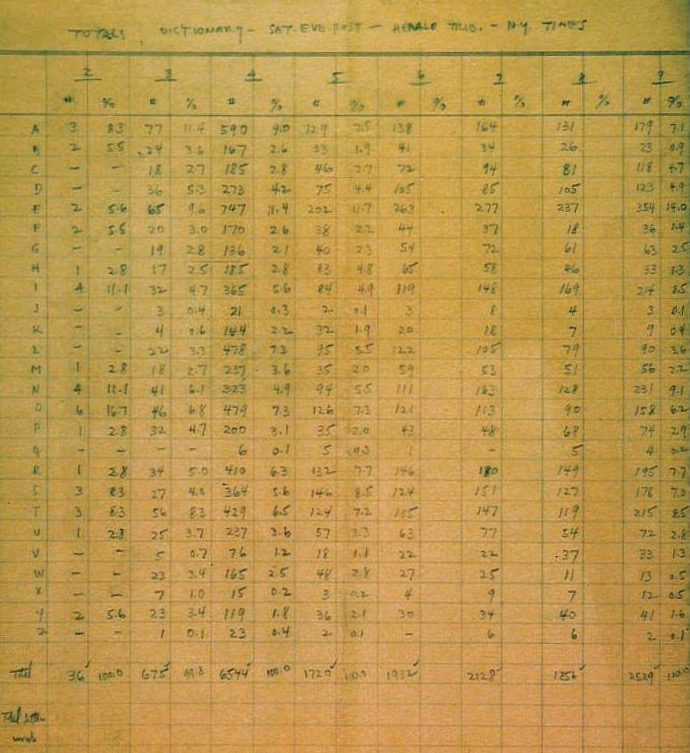 TOTALS, DICTIONARY - SAT. EVE POST - HERALD TRIB. - N.Y. TIMES
2 3 4 5 6 7 8 9
# % # % # % # % # % # % # % # %
A 3 8.3 77 11.4 590 9.0 129 7.5 138 164 131 179 7.1
B 2 5.5 24 3.6 167 2.6 33 1.9 41 34 26 23 0.9
C - - 18 2.7 185 2.8 46 2.7 72 94 81 118 4.7
D - - 36 5.3 273 4.2 75 4.4 105 85 105 123 4.9
E 2 5.6 65 9.6 747 11.4 202 11.7 263 277 237 354 14.0
F 2 5.5 20 3.0 170 2.6 38 2.2 44 37 18 36 1.4
G - - 19 2.8 136 2.1 40 2.3 54 72 61 63 2.5
H 1 2.8 17 2.5 185 2.8 83 4.8 65 58 46 33 1.3
I 4 11.1 32 4.7 365 5.6 84 4.9 119 148 169 214 8.5
J - - 3 0.4 21 0.3 2 0.1 3 8 4 3 0.1
K - - 4 0.6 144 2.2 32 1.9 20 18 7 9 0.4
L - - 22 3.3 478 7.3 95 5.5 122 105 79 90 3.6
M 1 2.8 18 2.7 237 3.6 35 2.0 59 53 51 56 2.2
N 4 11.1 41 6.1 323 4.9 94 5.5 111 163 128 231 9.1
O 6 16.7 46 6.8 479 7.3 126 7.3 121 113 90 158 6.2
P 1 2.8 32 4.7 200 3.1 35 2.0 43 48 68 74 2.9
Q - - - - 6 0.1 5 0.3 1 - 5 4 0.2
R 1 2.8 34 5.0 410 6.3 132 7.7 146 180 149 195 7.7
S 3 8.3 27 4.0 364 5.6 146 8.5 124 151 127 178 7.0
T 3 8.3 56 8.3 429 6.5 124 7.2 135 147 119 215 8.5
U 1 2.8 25 3.7 237 3.6 57 3.3 63 77 54 72 2.8
V - - 5 0.7 76 1.2 18 1.1 22 22 37 33 1.3
W - - 23 3.4 165 2.5 48 2.8 27 25 11 13 0.5
X - - 7 1.0 15 0.2 3 0.2 4 9 7 12 0.5
Y 2 5.6 23 3.4 119 1.8 36 2.1 30 34 40 41 1.6
Z - - 1 0.1 23 0.4 2 0.1 - 6 6 2 0.1
Total 36 100.0 675 99.8 6544 100.0 1720 100.0 1932 2128 1856 2529 100.0
Total
words